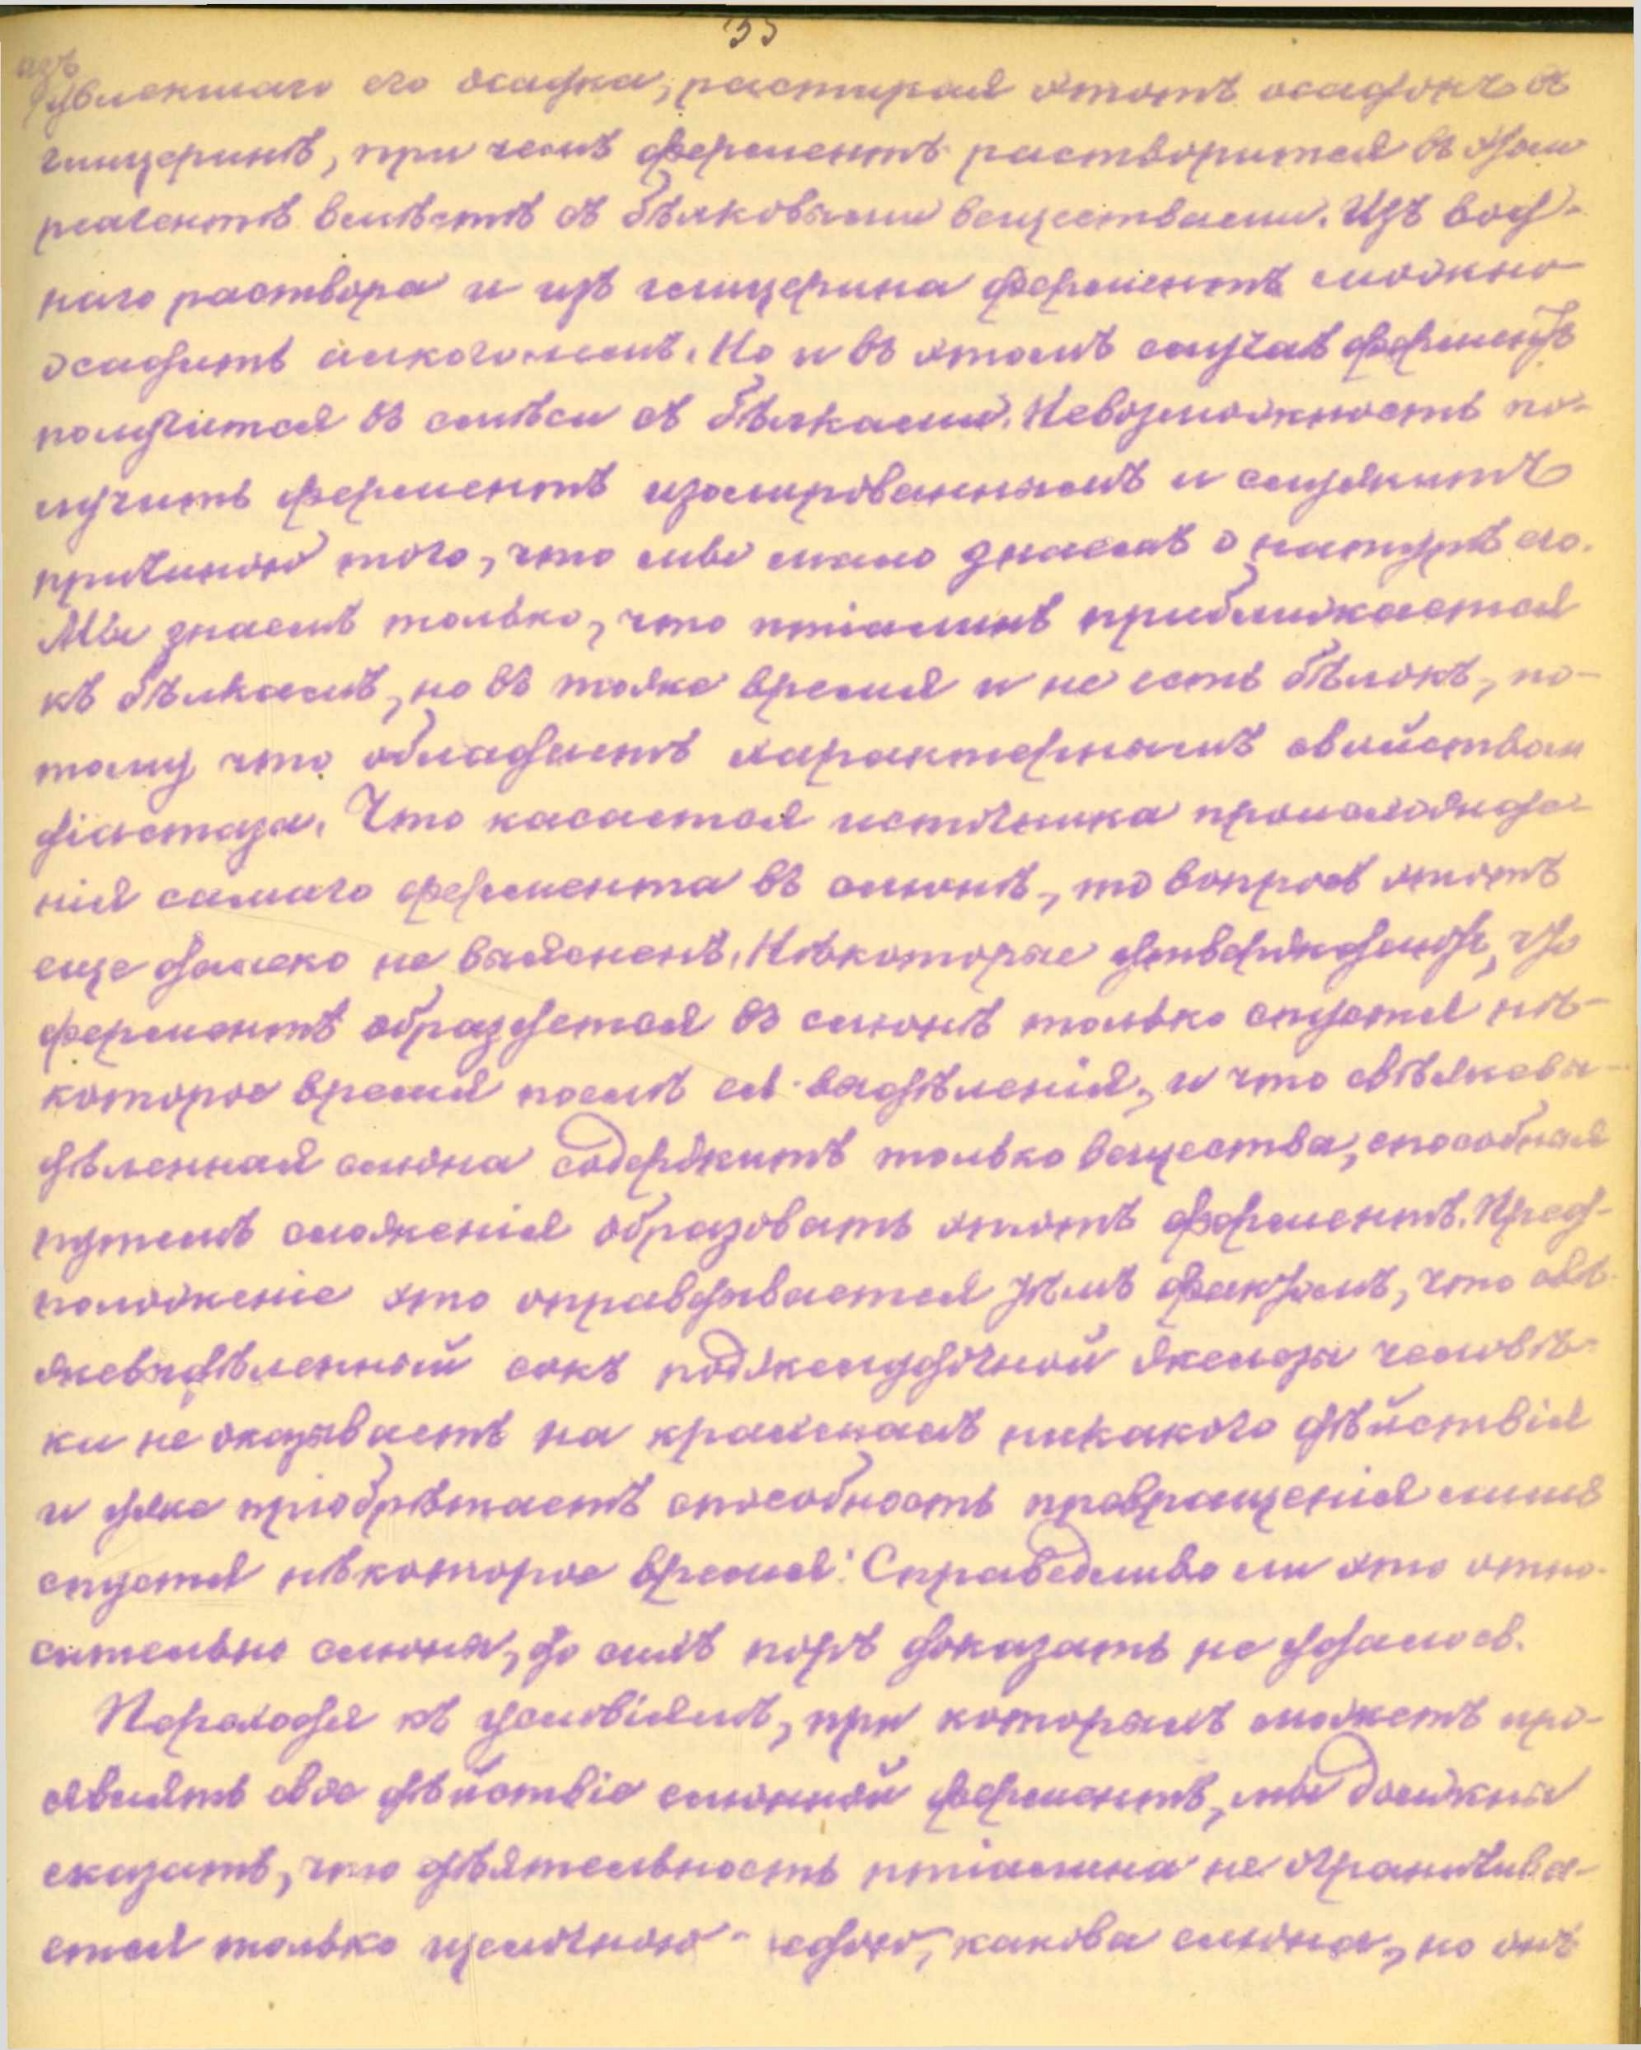 35
изъ
увлекшаго его осадка, растирая этотъ осадокъ въ
глицеринѣ, при чемъ ферментъ растворится въ этом
реагентѣ вмѣстѣ съ бѣлковыми веществами. Изъ вод-
наго раствора и изъ глицерина ферментъ можно
осадить алкоголемъ. Но и въ этомъ случаѣ ферментъ
получится въ смѣси съ бѣлками. Невозможность по-
лучить ферментъ изолированнымъ и служитъ
причиною того, что мы мало знаемъ о натурѣ его.
Мы знаемъ только, что птіалинъ приближается
къ бѣлкамъ, но въ тоже время и не есть бѣлокъ, по-
тому что обладаетъ характернымъ свойствам
діастаза. Что касается источника происхожде-
нія самаго фермента въ слюнѣ, то вопросъ этотъ
еще далеко не выясненъ. Нѣкоторые утверждаютъ, что
ферментъ образуется въ слюнѣ только спустя нѣ-
которое время послѣ ея выдѣленія, и что свѣжевы-
дѣленная слюна содержитъ только вещества, способныя
путемъ сложенія образовать этотъ ферментъ. Пред-
положеніе это оправдывается тѣмъ фактомъ, что свѣ-
жевыдѣленный сокъ поджелудочной железы человѣ-
ка не оказываетъ на крахмалъ никакого дѣйствія
и уже пріобрѣтаетъ способность превращенія лишь
спустя нѣкоторое время. Справедливо ли это отно-
сительно слюны, до сихъ поръ доказать не удалось.
Переходя къ условіямъ, при которыхъ можетъ про-
являть свое дѣйствіе слюнной ферментъ, мы должны
сказать, что дѣятельность птіалина не ограничива-
ется только щелочною средою, какова слюна, но онъ